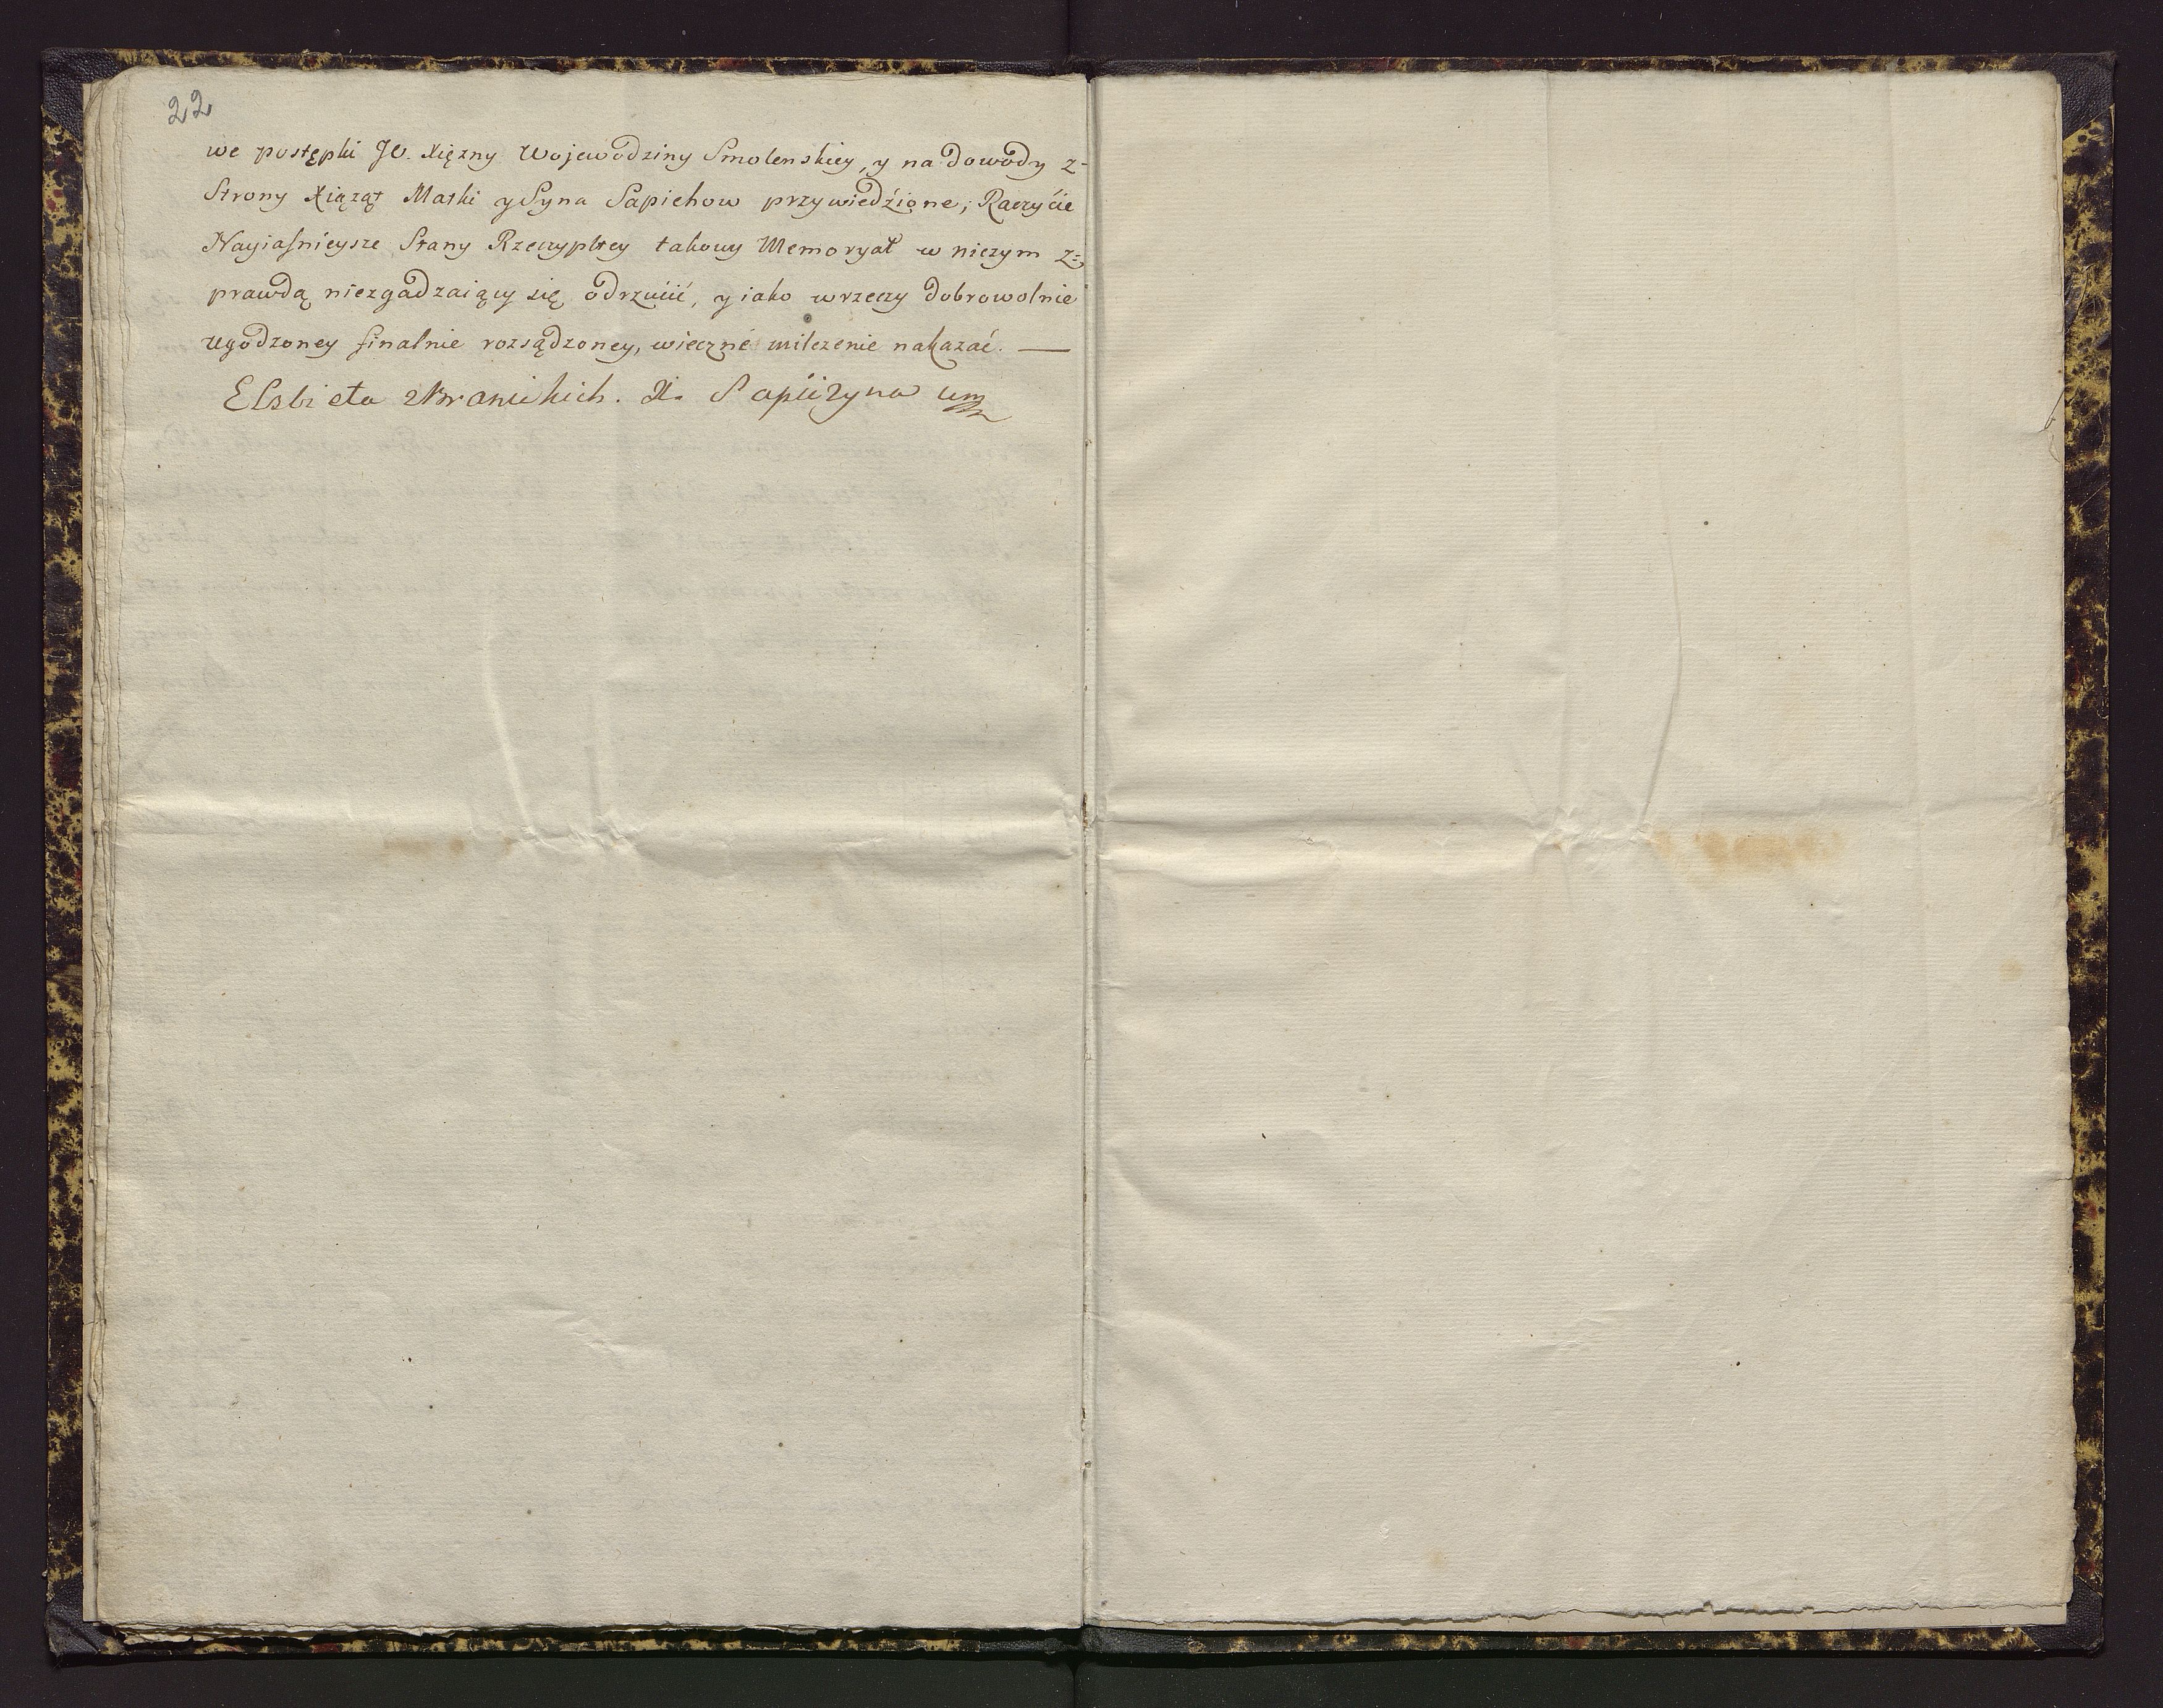 22
we postępki JO. Xięzny Wojewodziny Smolenskiey, y na dowody z-
Strony Xiąząt Matki y Syna Sapiehow przywiedźione; Raczyćie
Nayiaſnieysze Stany Rzeczypltey takowy Memoryał w niczym z=
prawdą niezgadzaiący się odrzućić, y iako w rzeczy dobrowolnie
ugodzoney finalnie rozsądzoney, wieczne milczenie nakazać. —
Elsbieta z Branickich. X. Sapiezyna